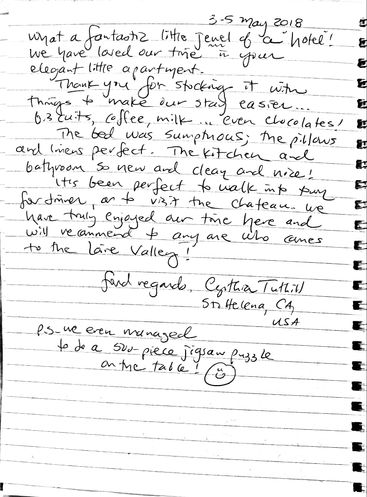 3-5 May 2018
What a fantastic little jewel of a "hotel"!
We have loved our time in your
elegant little apartment.
Thank you for stocking it with
things to make our stay easier...
biscuits, coffee, milk... even chocolates!
The bed was sumptuous; the pillows
and linens perfect. The kitchen and
bathroom so new and clean and nice!
It's been perfect to walk into town
for dinner, or to visit the chateau. We
have truly enjoyed our time here and
will recommend to anyone who comes
to the Loire Valley!
fond regards, Cynthia Tuthill
St Helena, CA,
USA
P.S. we even managed
to do a 500-piece jigsaw puzzle
on the table!